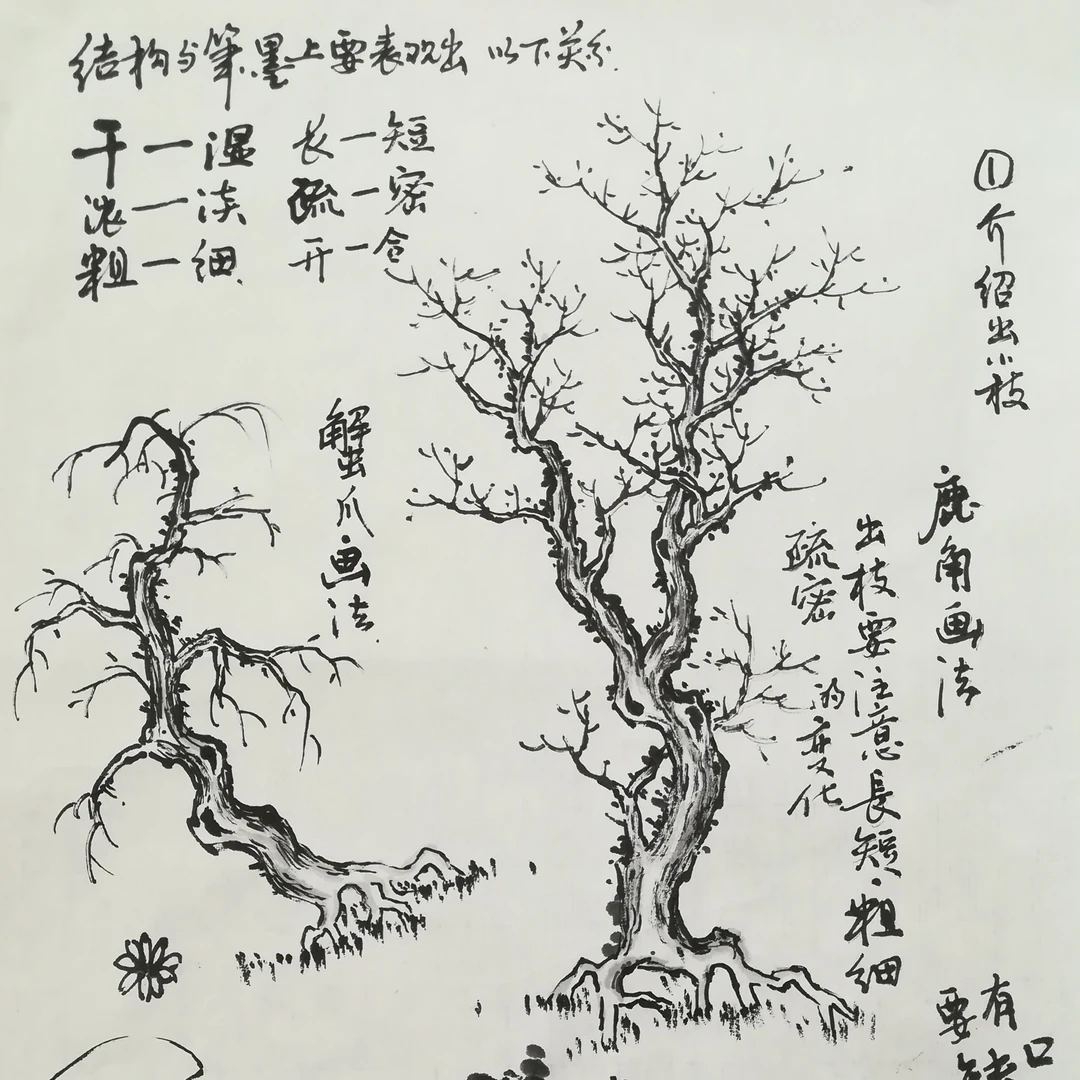 结构与筆墨上要表现出 以下关系
干一湿 长一短
浓一淡 疏一密
粗一细 开一合
①介绍出小枝
鹿角画法
出枝要注意長短.粗细
疏密的变化
蟹爪画法
有口
要